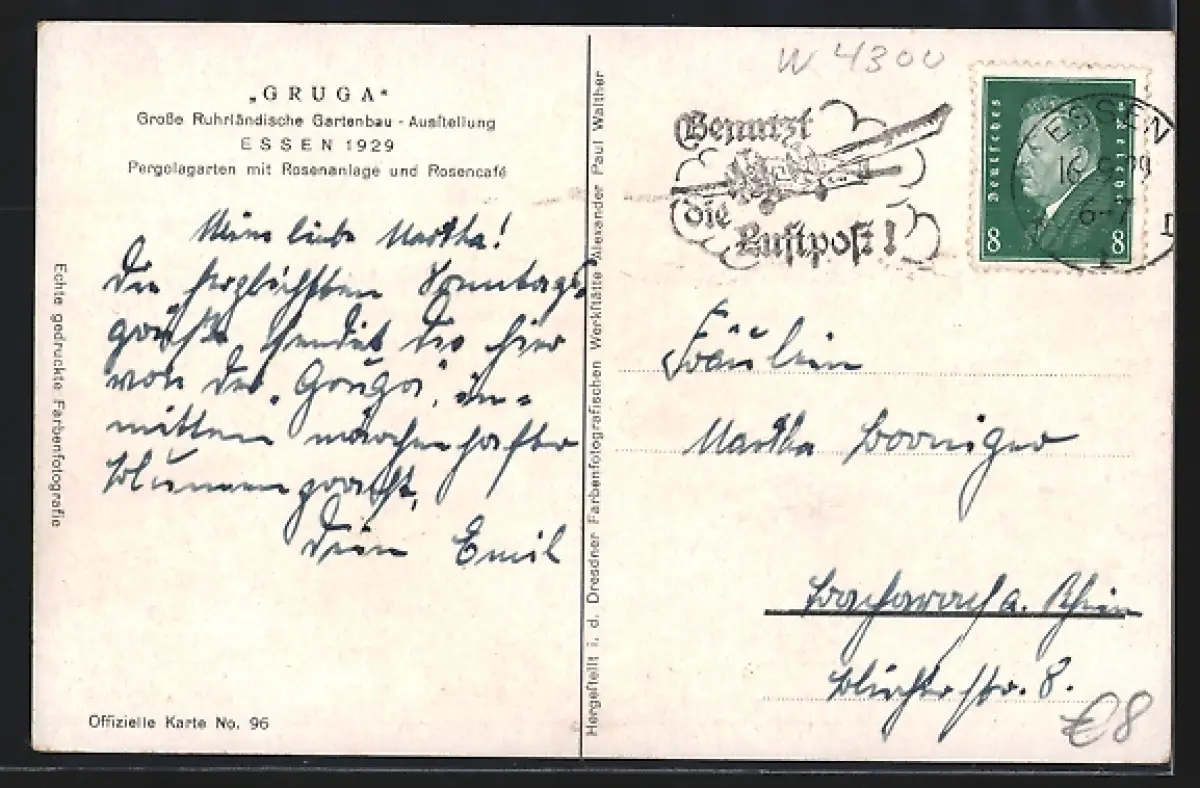 „GRUGA“
Große Ruhrländische Gartenbau - Ausstellung
ESSEN 1929
Pergolagarten mit Rosenanlage und Rosencafé
Meine liebe Martha!
Die herzlichsten Sonntags-
grüße sendet Dir hier
von der „Gruga“, in-
mitten märchenhafter
Blumenpracht,
Dein Emil
Echte gedruckte Farbenfotografie
Offizielle Karte No. 96
Hergestellt i. d. Dresdner Farbenfotografischen Werkstätte Alexander Paul Walther
W 4300
Benutzt
die
Luftpost!
Deutsches Reich
8 8
ESSEN
Fräulein
Martha
Bacharach a. Rhein
Blücherstr. 8.
€8